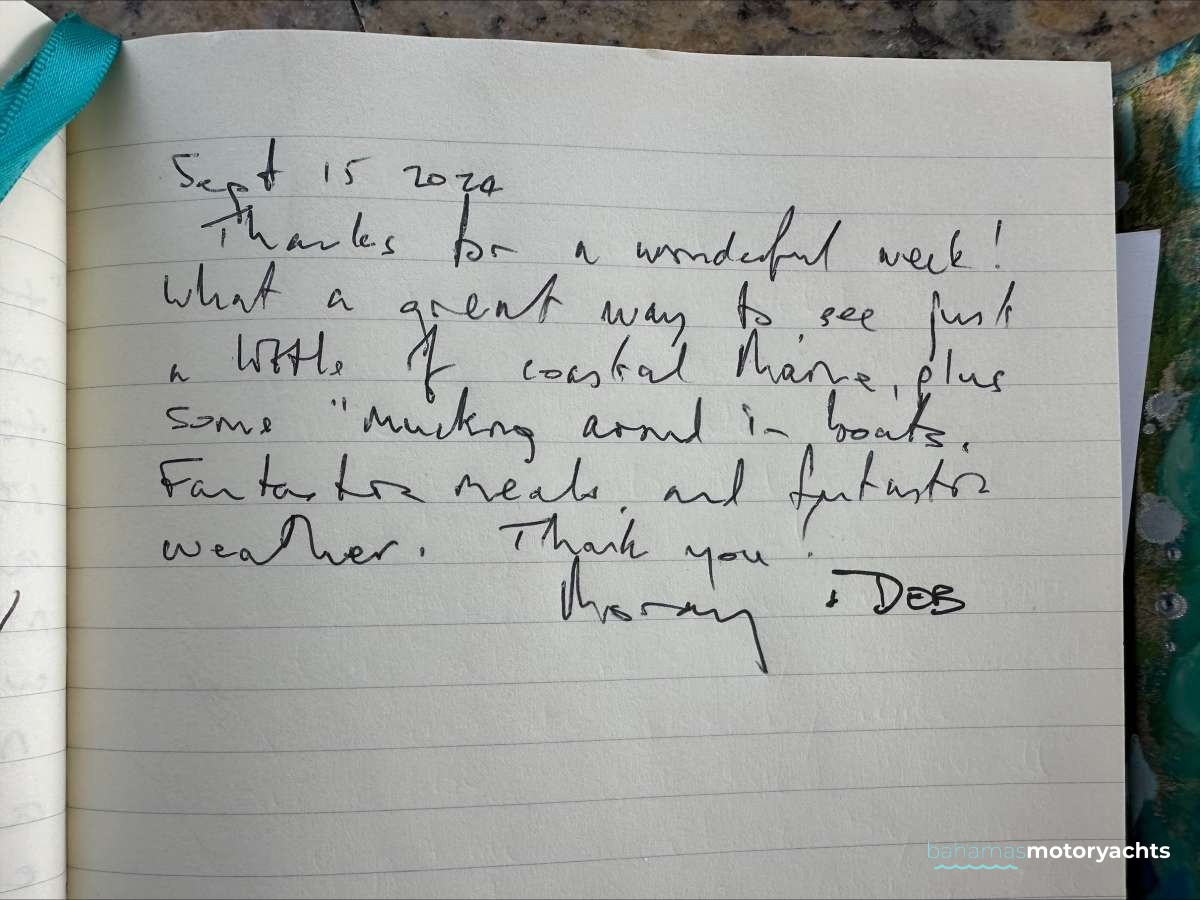 Sept 15 2024
Thanks for a wonderful week!
What a great way to see just
a little of coastal Maine, plus
some "mucking around in boats.
Fantastic meals, and fantastic
weather. Thank you!
+ DEB
bahamasmotoryachts